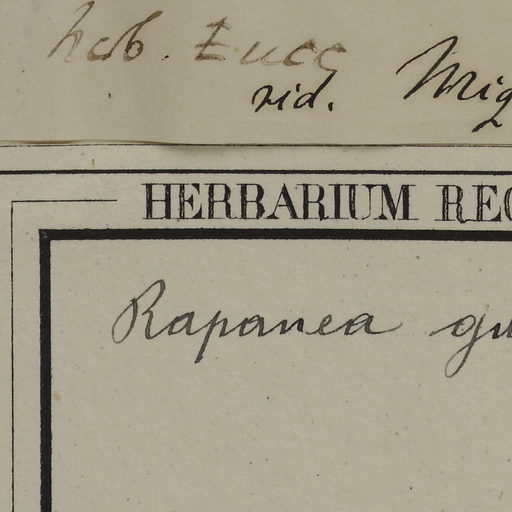 hcb. Zucc
vid. Miq
HERBARIUM REG
Rapanea gu